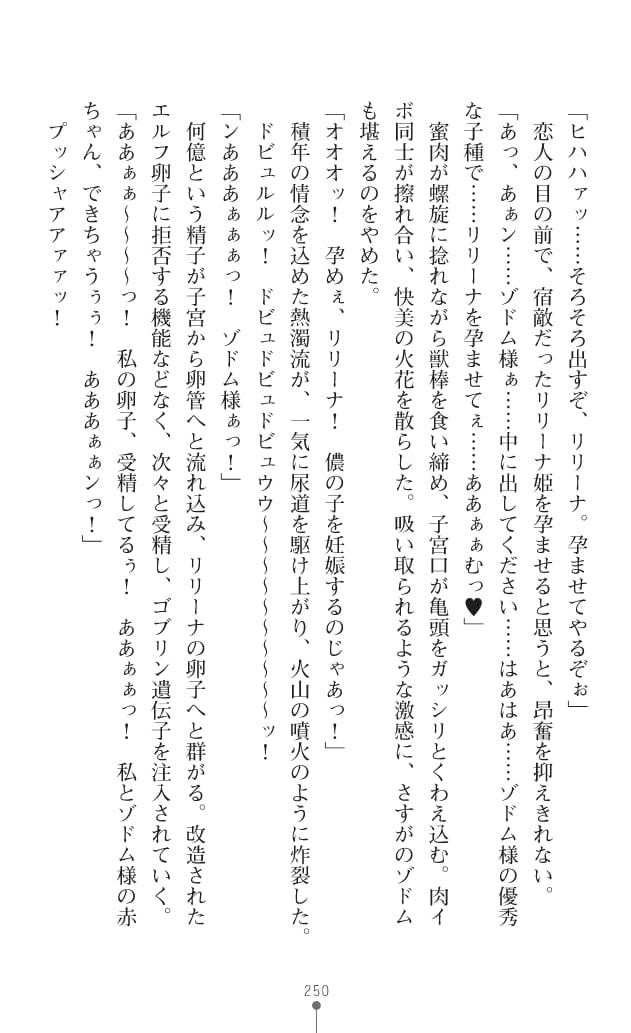 「ヒハハァッ……そろそろ出すぞ、リリーナ。孕ませてやるぞぉ」
恋人の目の前で、宿敵だったリリーナ姫を孕ませると思うと、昂奮を抑えきれない。
「あっ、あぁン……ゾドム様ぁ……中に出してください……はあはあ……ゾドム様の優秀
な子種で……リリーナを孕ませてぇ……ああぁぁむっ♥」
蜜肉が螺旋に捻れながら獣棒を食い締め、子宮口が亀頭をガッシリとくわえ込む。肉イ
ボ同士が擦れ合い、快美の火花を散らした。吸い取られるような激感に、さすがのゾドム
も堪えるのをやめた。
「オオオッ！　孕めぇ、リリーナ！　儂の子を妊娠するのじゃあっ！」
積年の情念を込めた熱濁流が、一気に尿道を駆け上がり、火山の噴火のように炸裂した。
ドビュルルッ！　ドビュドビュドビュウウ～～～～～～～～ッ！
「ンあああぁぁぁっ！　ゾドム様ぁっ！」
何億という精子が子宮から卵管へと流れ込み、リリーナの卵子へと群がる。改造された
エルフ卵子に拒否する機能などなく、次々と受精し、ゴブリン遺伝子を注入されていく。
「ああぁぁ～～～～っ！　私の卵子、受精してるぅ！　ああぁぁっ！　私とゾドム様の赤
ちゃん、できちゃうぅぅ！　あああぁぁンっ！」
プッシャアアァァッ！
250